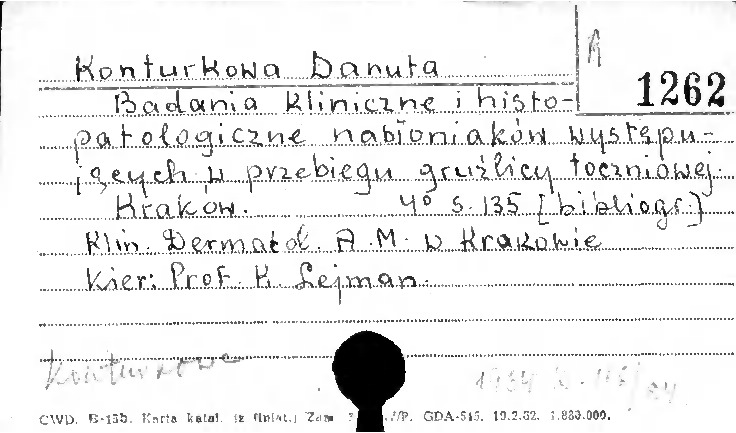 Konturkowa Danuta
A
1262
Badania kliniczne i histo-
patologiczne nabłoniaków występu-
jących w przebiegu gruźlicy toczniowej.
Kraków. 4° s. 135 [bibliogr.]
Klin. Dermatol. A.M. w Krakowie
Kier: Prof. K. Lejman.
Konturkowa
1964
CWD. B-15b. Karta katal. (z flniat.) Zam /P. GDA-515. 19.2.62. 1.830.000.